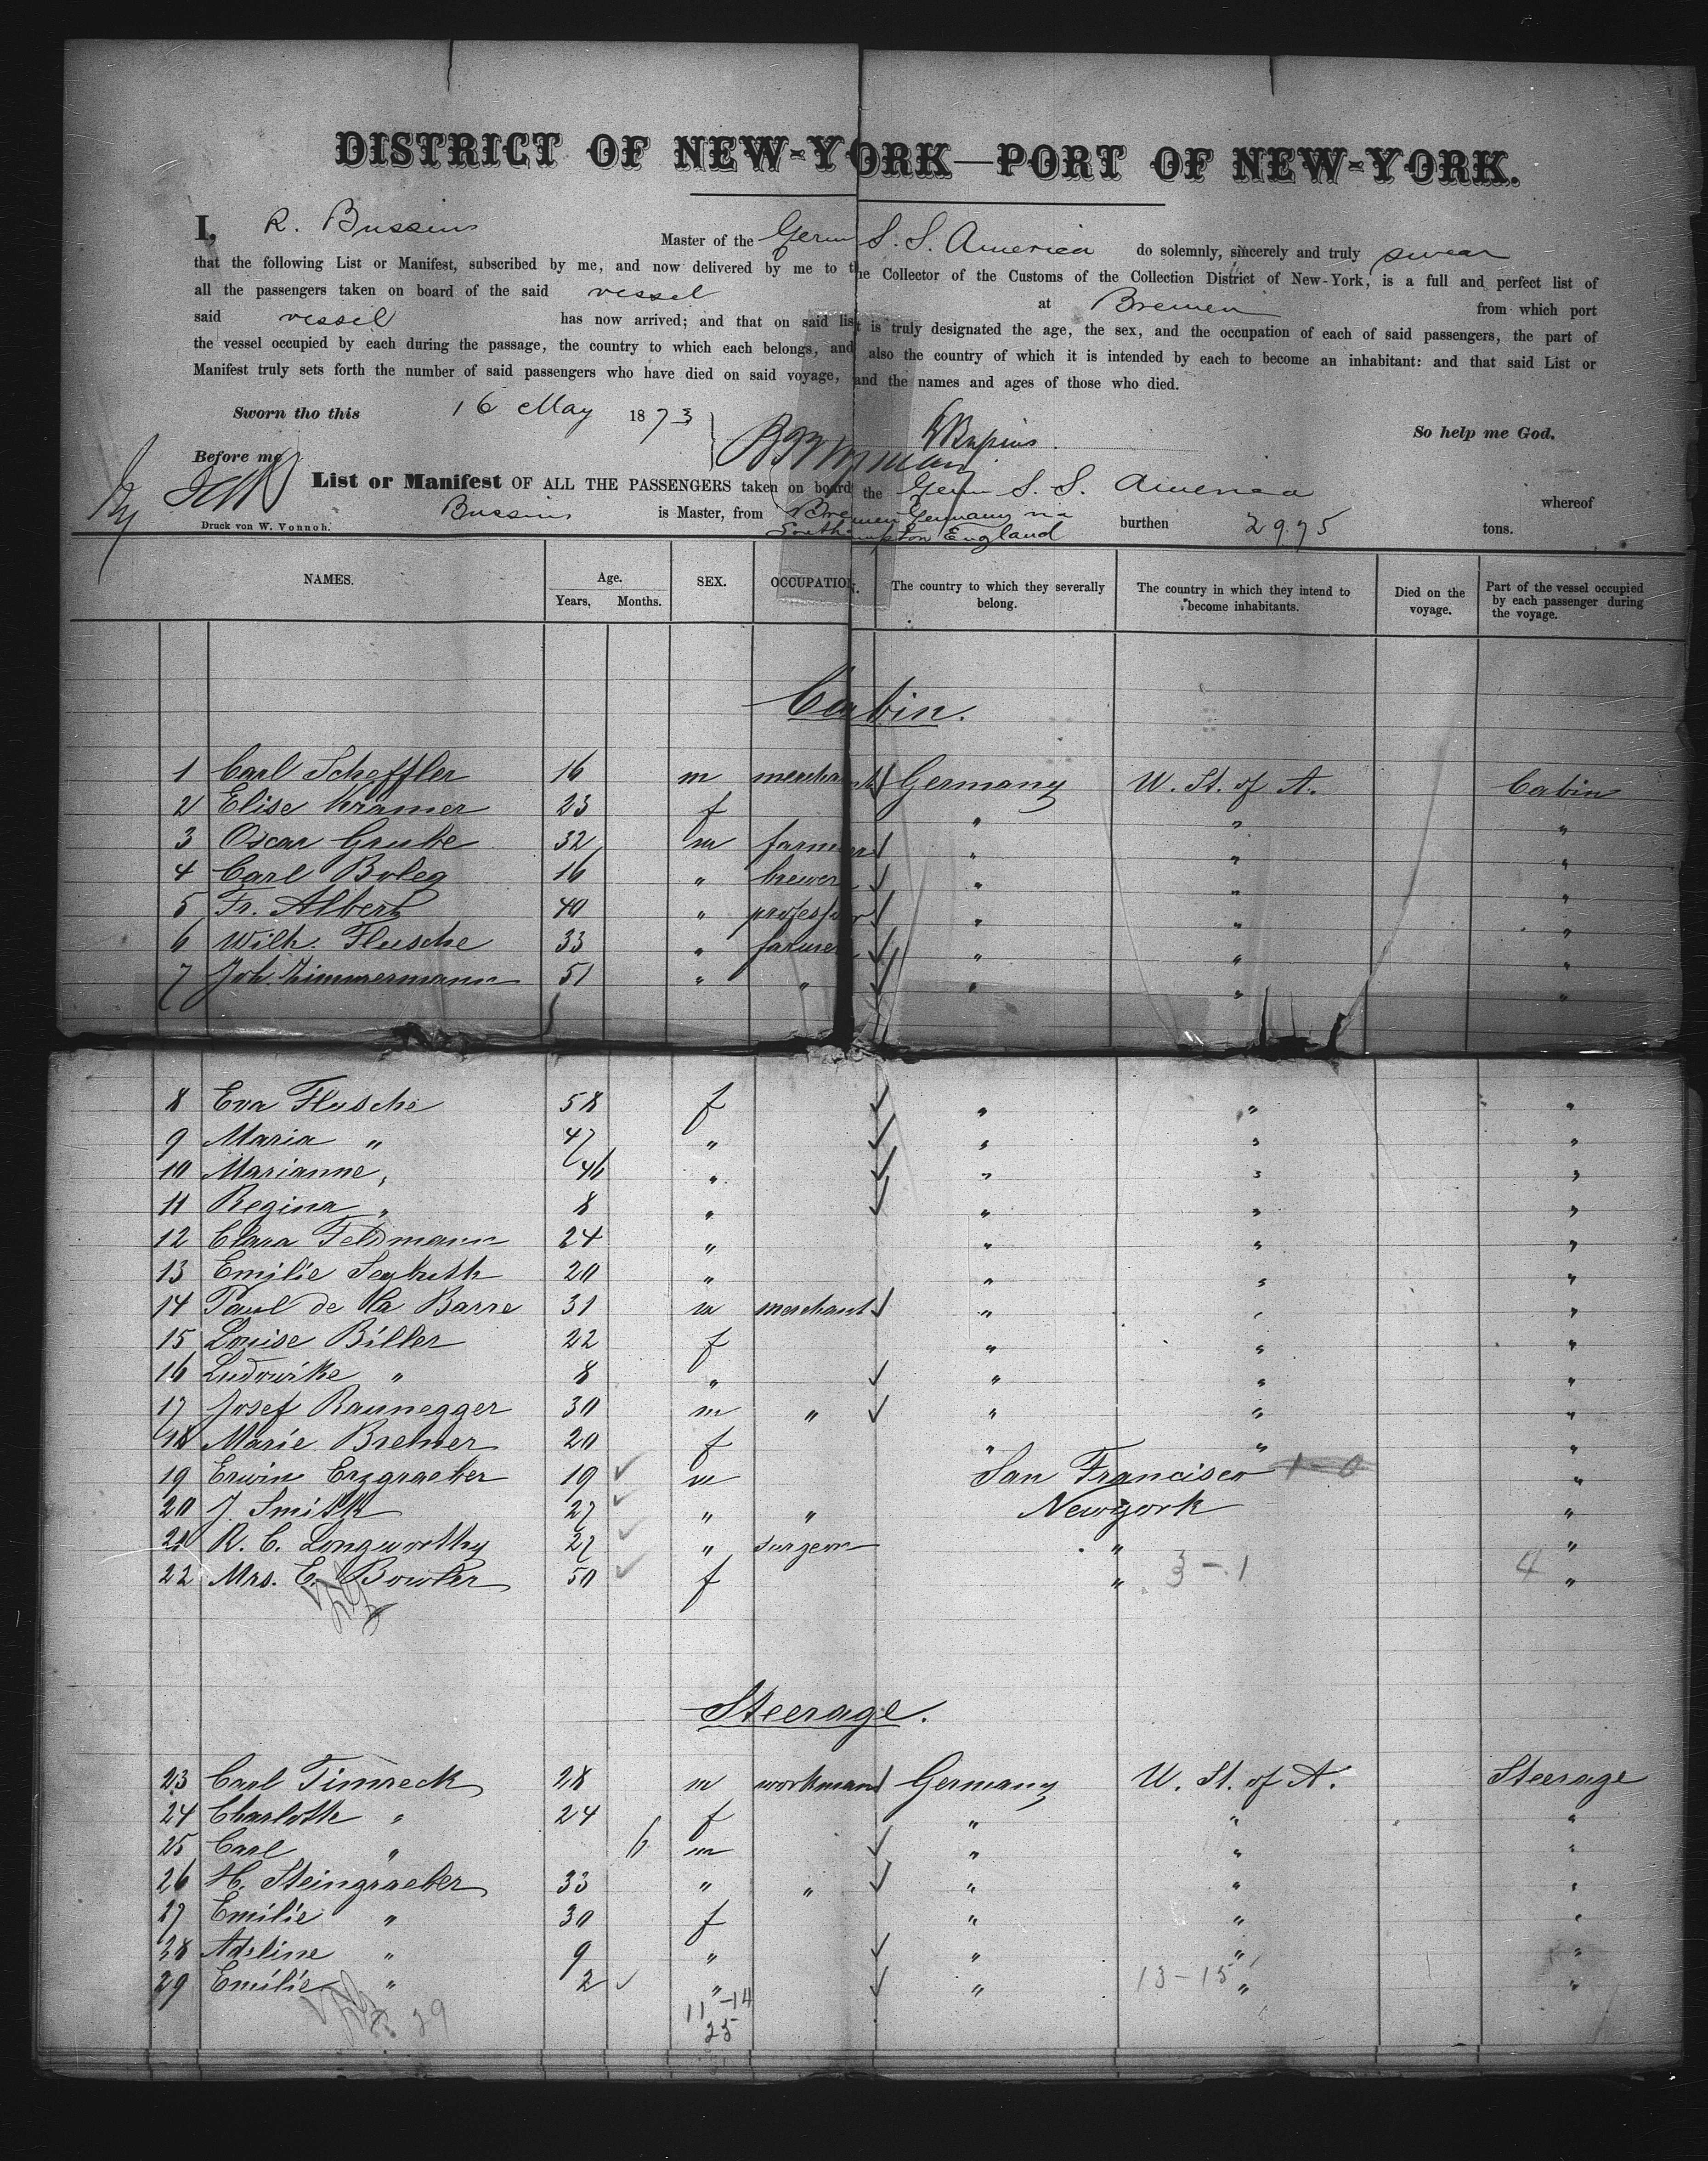 DISTRICT OF NEW-YORK—PORT OF NEW-YORK.
I, R. Bussius Master of the Germ S. S. America do solemnly, sincerely and truly swear
that the following List or Manifest, subscribed by me, and now delivered by me to the Collector of the Customs of the Collection District of New-York, is a full and perfect list of
all the passengers taken on board of the said vessel at Bremen from which port
said vessel has now arrived; and that on said list is truly designated the age, the sex, and the occupation of each of said passengers, the part of
the vessel occupied by each during the passage, the country to which each belongs, and also the country of which it is intended by each to become an inhabitant: and that said List or
Manifest truly sets forth the number of said passengers who have died on said voyage, and the names and ages of those who died.
Sworn tho this 16 May 1873 So help me God.
Before me
List or Manifest OF ALL THE PASSENGERS taken on board the Germ S. S. America whereof
Bussius is Master, from Bremen Germany via Southampton England burthen 2975 tons.
Druck von W. Vonnoh.
NAMES. Age. Years, Months. SEX. OCCUPATION. The country to which they severally belong. The country in which they intend to become inhabitants. Died on the voyage. Part of the vessel occupied by each passenger during the voyage.
Cabin.
1 Carl Scheffler 16 m merchant Germany U. St. of A. Cabin
2 Elise Kramer 23 f " " "
3 Oscar Grube 32 m farmer " " "
4 Carl Boleg 16 " brewer " " "
5 Fr. Albert 40 " professor " " "
6 Wilh. Flusche 33 " farmer " " "
7 Joh. Zimmermann 51 " " " " "
8 Eva Flusche 58 f " " "
9 Maria " 47 " " " "
10 Marianne " 46 " " " "
11 Regina " 8 " " " "
12 Clara Feldmann 24 " " " "
13 Emilie Seybuth 20 " " " "
14 Paul de la Barre 31 m merchant " " "
15 Louise Biller 22 f " " "
16 Ludowike " 8 " " " "
17 Josef Raunegger 30 m " " " "
18 Marie Bremer 20 f " " "
19 Erwin Erzgraeber 19 m San Francisco 1-0 "
20 J. Smith 27 " " Newyork "
21 R. C. Longworthy 27 " surgeon " "
22 Mrs. E. Bowler 50 f " 3-1 4 "
Steerage.
23 Carl Timreck 28 m workman Germany U. St. of A. Steerage
24 Charlotte " 24 f " " "
25 Carl " 6 m " " "
26 H. Steingraeber 33 " " " " "
27 Emilie " 30 f " " "
28 Adeline " 9 " " " "
29 Emilie " 2 " " 13-15 " "
29 11-14
25